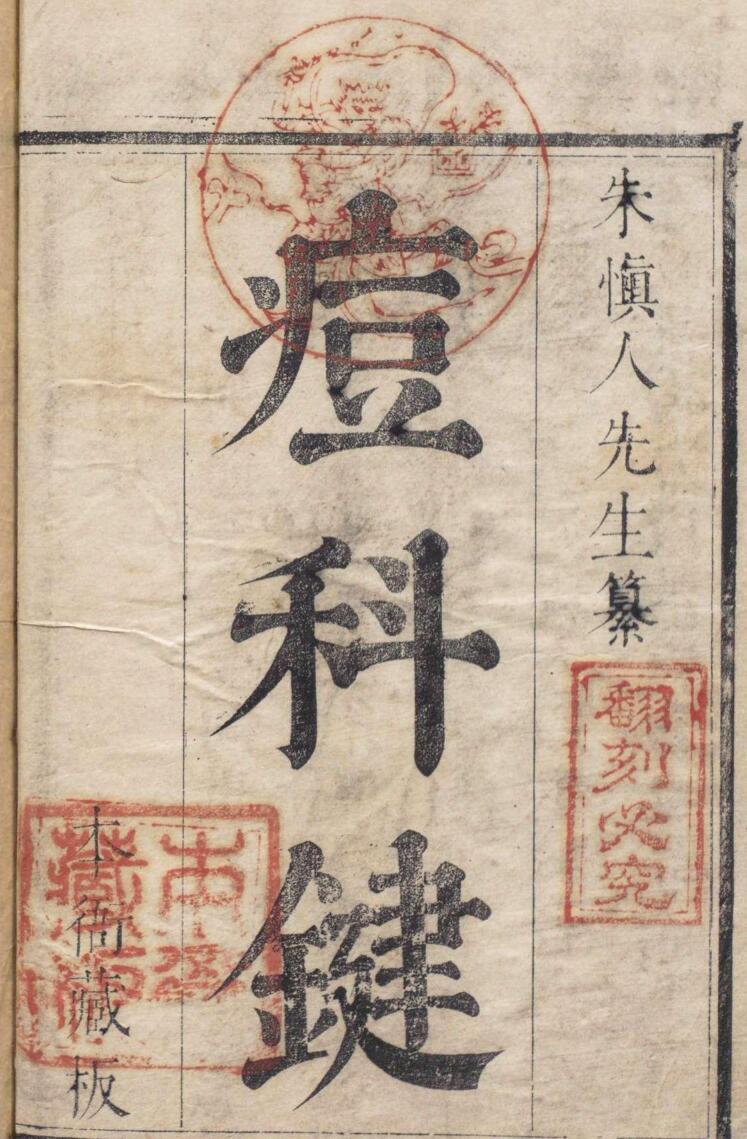 朱慎人先生纂
翻刻必究
痘科鍵
本衙藏板